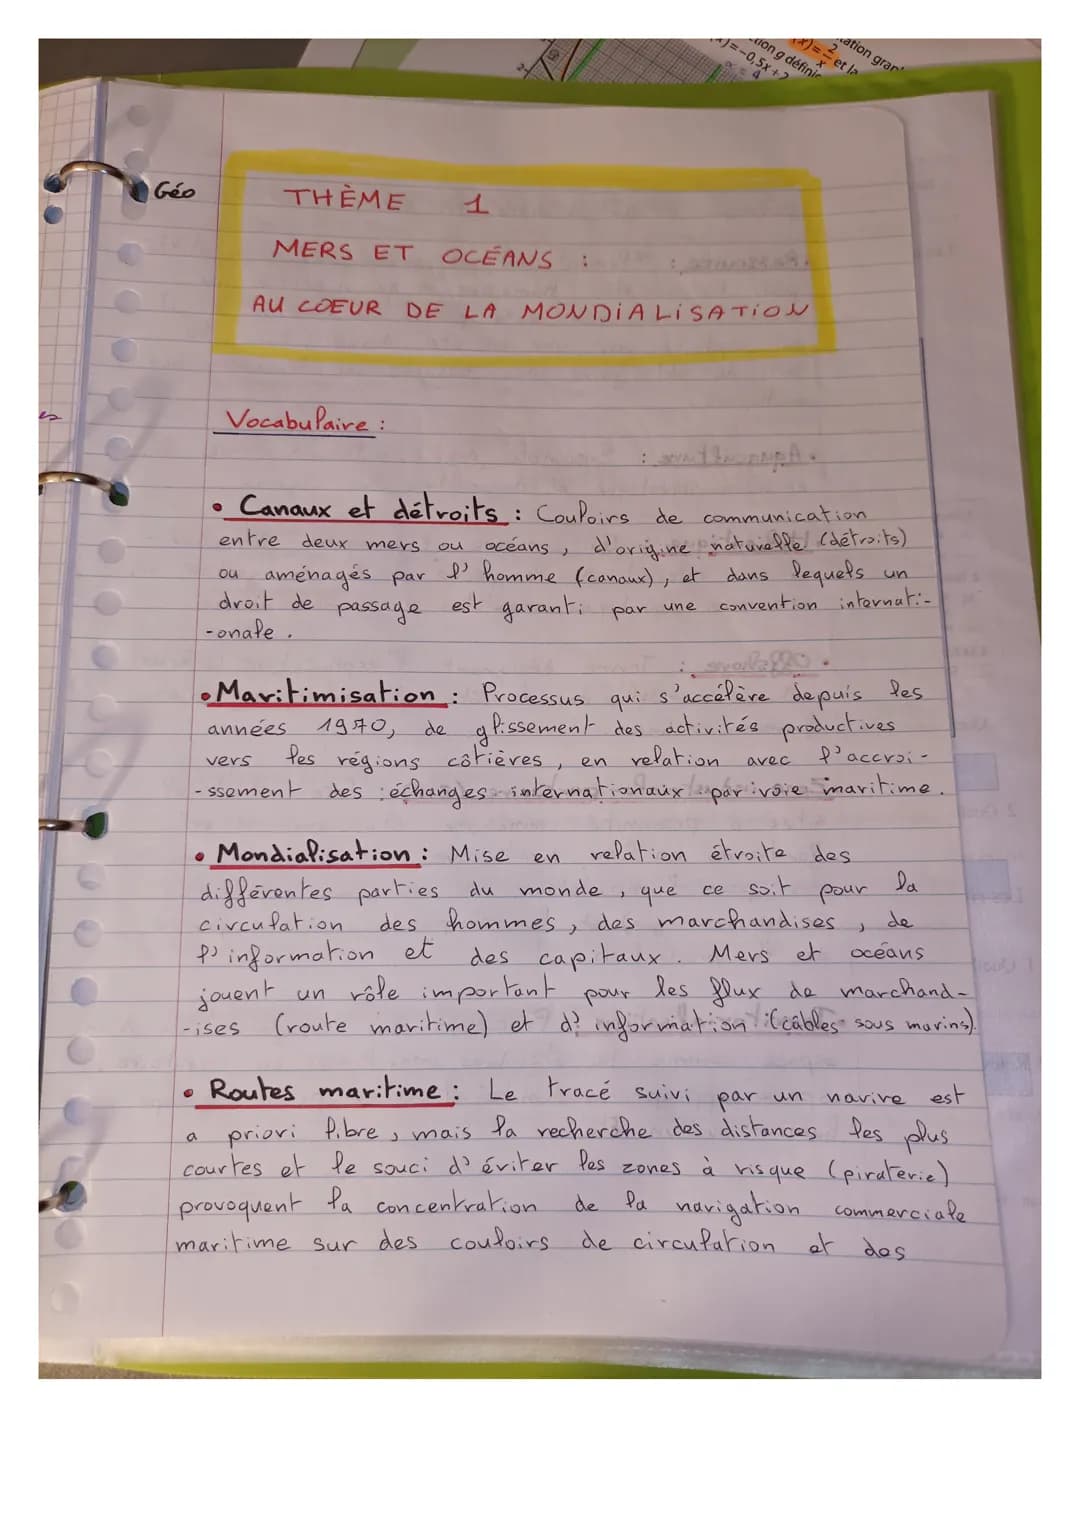 ation grap
(x)=2/x et la
tion g défini
x)=-0,5x+2
Géo
THÈME 1
MERS ET OCÉANS :
AU COEUR DE LA MONDIALISATION
Vocabulaire :
• Canaux et détroits : Couloirs de communication
entre deux mers ou océans, d'origine naturelle (détroits)
ou aménagés par l'homme (canaux), et dans lequels un
droit de passage est garanti par une convention internati-
-onale.
• Maritimisation : Processus qui s'accélère depuis les
années 1970, de glissement des activités productives
vers les régions côtières, en relation avec l'accroi-
-ssement des échanges internationaux par voie maritime.
• Mondialisation : Mise en relation étroite des
différentes parties du monde, que ce soit pour la
circulation des hommes, des marchandises, de
l'information et des capitaux. Mers et océans
jouent un rôle important pour les flux de marchand-
-ises (route maritime) et d'information (câbles sous marins).
• Routes maritime : Le tracé suivi par un navire est
a priori libre, mais la recherche des distances les plus
courtes et le souci d'éviter les zones à risque (piraterie)
provoquent la concentration de la navigation commerciale
maritime sur des couloirs de circulation et des